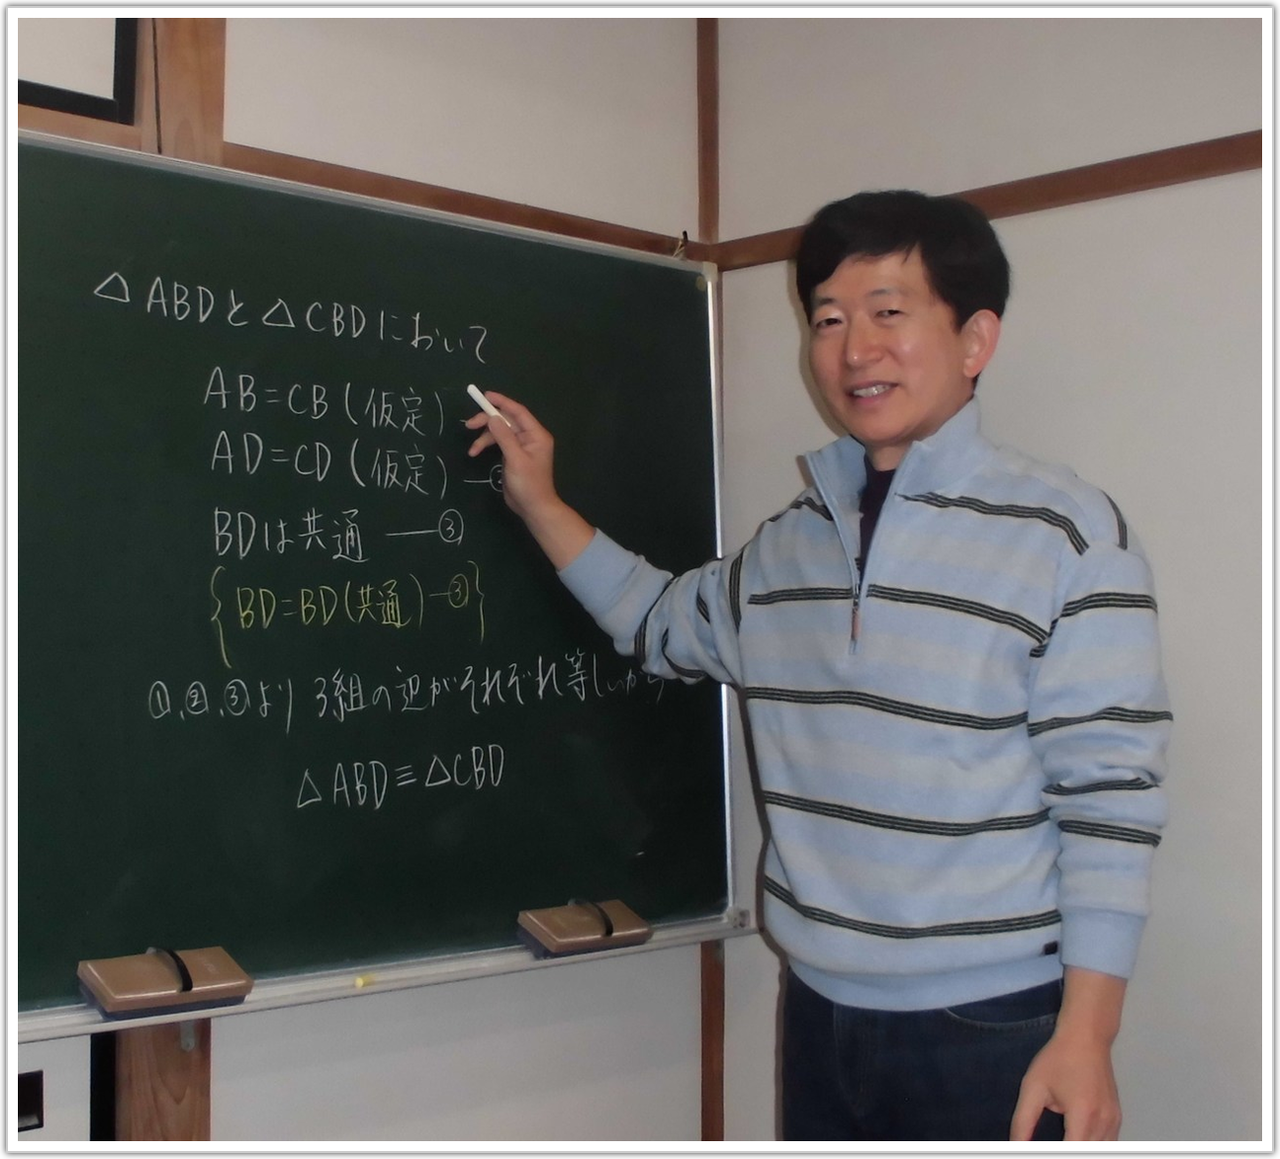 △ABDと△CBDにおいて
AB=CB(仮定)
AD=CD(仮定)—②
BDは共通 —③
{BD=BD(共通)—③}
①,②,③より 3組の辺がそれぞれ等しいから
△ABD≡△CBD